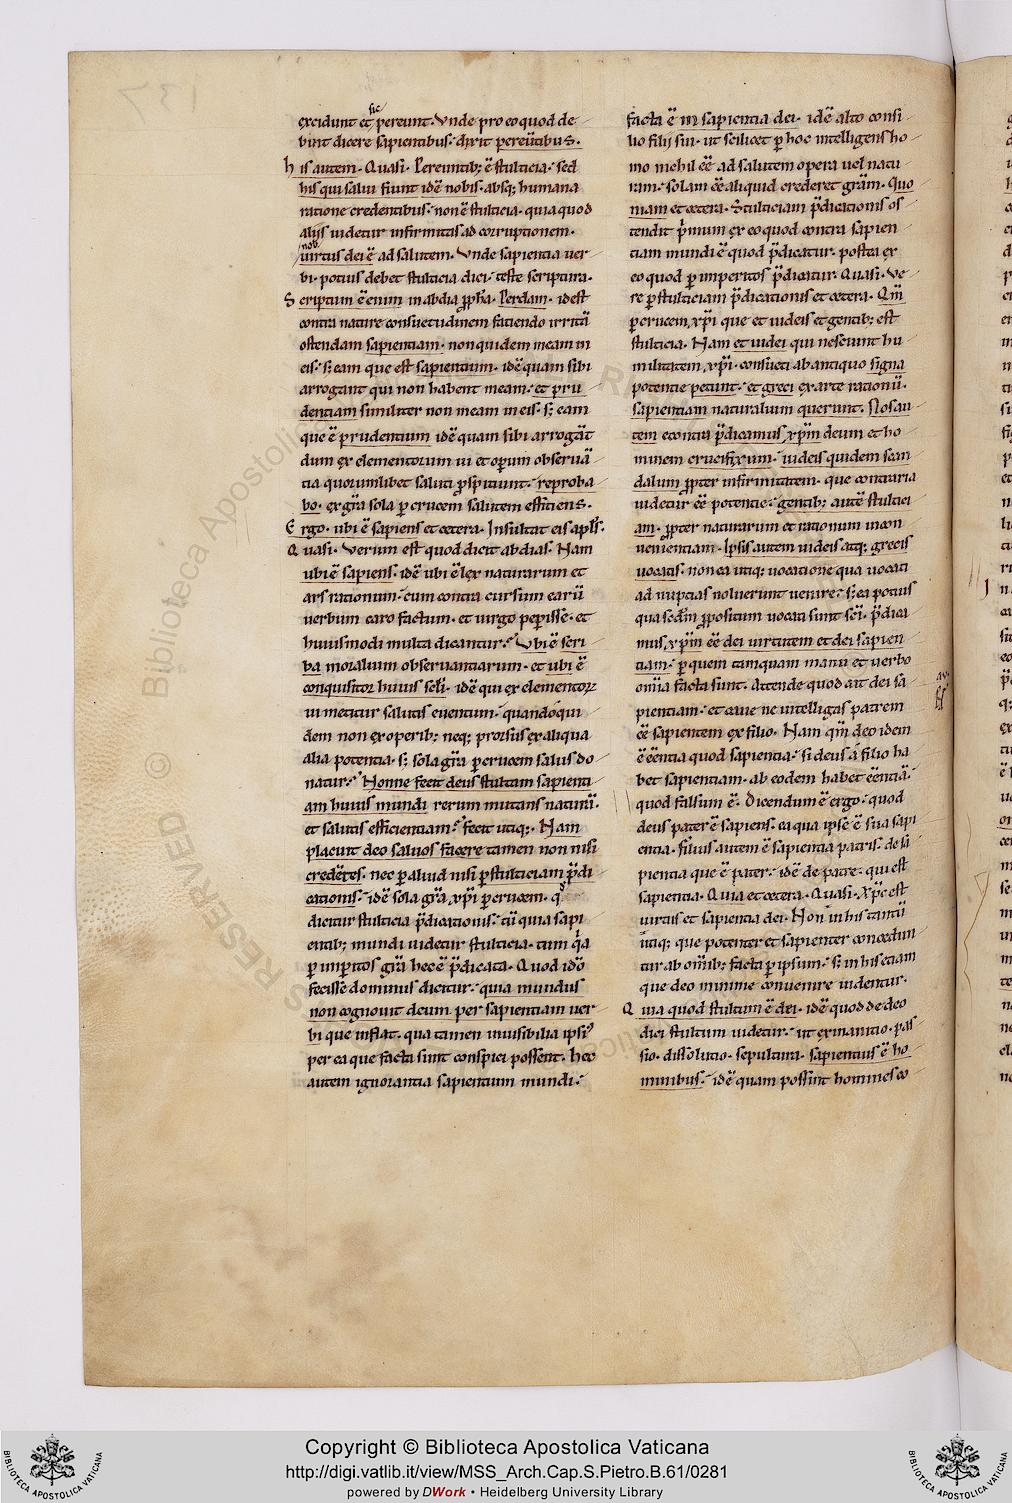 sic
excidunt et pereunt. Vnde pro eo quod de
bent dicere sapientibus. dixit pereũtibus.
his autem. Quasi. Pereuntib; ẽ stulticia. sed
his qui salui fiunt idẽ nobis. absq; humana
ratione credentibus. non ẽ stulticia. quia quod
aliis uidetur infirmitas ad corruptionem.
nob
uirtus dei ẽ ad salutem. Vnde sapientia uer
bi. potius debet stulticia dici. teste scriptura.
Scriptum ẽ enim in abdia ꝓph̃a. Perdam. id est
contra nature consuetudinem faciendo irritã
ostendam sapientiam. non quidem meam in
eis. s; eam que est sapientum. idẽ quam sibi
arrogant qui non habent meam. et pru
dentiam similiter non meam in eis. s; eam
que ẽ prudentium idẽ quam sibi arrogãt
dum ex elementorum ui et oꝑum obseruã
tia quorumlibet saluti ꝓspitiunt. reproba
bo. ex gr̃a sola ꝑ crucem salutem efficiens.
Ergo. ubi ẽ sapiens et cetera. Insultat eis apl̃s.
Quasi. Verum est quod dicit abdias. Nam
ubi ẽ sapiens. idẽ ubi ẽ lex naturarum et
ars rationum. cum contra cursum earũ
uerbum caro factum. et uirgo peꝑisse. et
huiusmodi multa dicantur. Vbi ẽ scri
ba moralium obseruantiarum. et ubi ẽ
conquisitor huius sc̃li. idẽ qui ex elementoꝝ
ui metitur salutis euentum. quandoqui
dem non ex operib; neq; prorsus ex aliqua
alia potentia. s; sola gr̃a ꝑ crucem salus do
natur. Nonne fecit deus stultam sapienti
am huius mundi rerum mutans naturã.
et salutis efficientiam. fecit utiq;. Nam
placuit deo saluos facere tamen non nisi
credẽtes. nec ꝑ aliud nisi ꝑ stulticiam p̃di
cationis. idẽ sola gr̃a xp̃i ꝑ crucem. q̃
dicitur stulticia p̃dicationis. tũ quia sapi
entib; mundi uidetur stulticia. tum q̃a
ꝑ imꝑitos gr̃a hec ẽ p̃dicata. Quod idõ
fecisse dominus dicitur. quia mundus
non cognouit deum per sapientiam uer
bi que inflat. qua tamen inuisibilia ipsi
per ea que facta sunt conspici possent. hec
autem ignorantia sapientium mundi.
facta ẽ in sapientia dei. idẽ alto consi
lio filii sui. ut scilicet ꝑ hoc intelligens ho
mo nichil ẽẽ ad salutem opera uel natu
ram. solam ẽẽ aliquid crederet gr̃am. Quo
niam et cetera. Stulticiam p̃dicationis os
tendit p̃mum ex eo quod contra sapien
tiam mundi ẽ quod p̃dicatur. postea ex
eo quod ꝑ imperitos p̃dicatur. Quasi. Ve
re ꝑ stulticiam p̃dicationis et cetera. Qm̃
ꝑ crucem xp̃i que et iudeis et gentib; est
stulticia. Nam et iudei qui nesciunt hu
militatem xp̃i. consueti ab antiquo signa
potentie petunt. et greci ex arte rationũ.
sapientiam naturalium querunt. Nos au
tem econtra p̃dicamus xp̃m deum et ho
minem crucifixum. iudeis quidem scan
dalum ꝓpter infirmitatem. que contraria
uidetur ẽẽ potentie. gentib; autẽ stultici
am. ꝓpter naturarum et rationum incon
uenientiam. Ipsis autem iudeis atq; grecis
uocatis. non ea utiq; uocatione qua uocati
ad nuptias noluerunt uenire. s; ea potius
qua sedm̃ ꝓpositum uocati sunt sc̃i. p̃dica
mus xp̃m ẽẽ dei uirtutem et dei sapien
tiam. ꝑ quem tamquam manu et uerbo
om̃ia facta sunt. Attende quod ait dei sa
pientiam. et caue ne intelligas patrem
ẽẽ sapientem ex filio. Nam qm̃ deo idem
ẽ ẽẽntia quod sapientia. si deus a filio ha
bet sapientiam. ab eodem habet ẽẽntiã.
quod falsum ẽ. Dicendum ẽ ergo. quod
deus pater ẽ sapiens. ea qua ipse ẽ sua sapi
entia. filius autem ẽ sapientia patris. de sa
pientia que ẽ pater. idẽ de patre. qui est
sapientia. Quia et cetera. Quasi. Xp̃c est
uirtus et sapientia dei. Non in his tantũ
utiq; que potenter et sapienter concedun
tur ab om̃ib; facta ꝑ ipsum. s; in his etiam
que deo minime conuenire uidentur.
Quia quod stultum ẽ dei. idẽ quod de deo
dici stultum uidetur. ut exinanitio. pas
sio. dissolutio. sepultura. sapientius ẽ ho
minibus. idẽ quam possint homines eo
Copyright © Biblioteca Apostolica Vaticana
http://digi.vatlib.it/view/MSS_Arch.Cap.S.Pietro.B.61/0281
powered by DWork • Heidelberg University Library